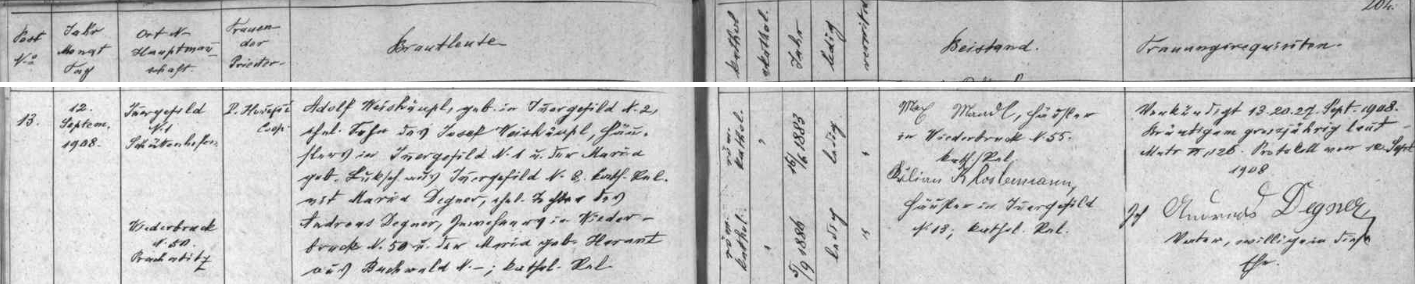 204.
Post
No
Jahr
Monat
Tag
Ort u.
Hauptmann-
schaft.
Trauen-
der
Priester.
Brautleute
kathol.
akathol.
Jahr
ledig
verwitwet
Beistand.
Trauungsrequisiten.
13.
12.
Septem.
1908.
Innergefild
N. 1
Schüttenhofen
Wiederbruck
N. 50.
Prachatitz
P.
Coop.
Adolf Weishäupl, geb. in Innergefild N. 2,
ehel. Sohn des Josef Weishäupl, Häus-
lers in Innergefild N. 1 u. der Maria
geb. Luksch aus Innergefild N. 8. kath. Rel.
mit Maria Degner, ehel. Tochter des
Andreas Degner, Inwohners in Wieder-
bruck N. 50 u. der Maria geb.
aus Buchwald N. –; kathol. Rel
röm.
kathol.
"
16/6 1883
ledig
"
röm.
kathol.
"
5/9 1886
ledig
"
Max Mandl, Häusler
in Wiederbruck N 55.
kath. Rel.
Kilian Klostermann,
Häusler in Innergefild
N 18; kathol. Rel.
Verkündigt 13. 20. 27. Sept. 1908.
Bräutigam grossjährig laut
Matr. 126. Protokoll vom 12. Sept
1908
Ich Andreas Degner,
Vater, willige in diese
Ehe.